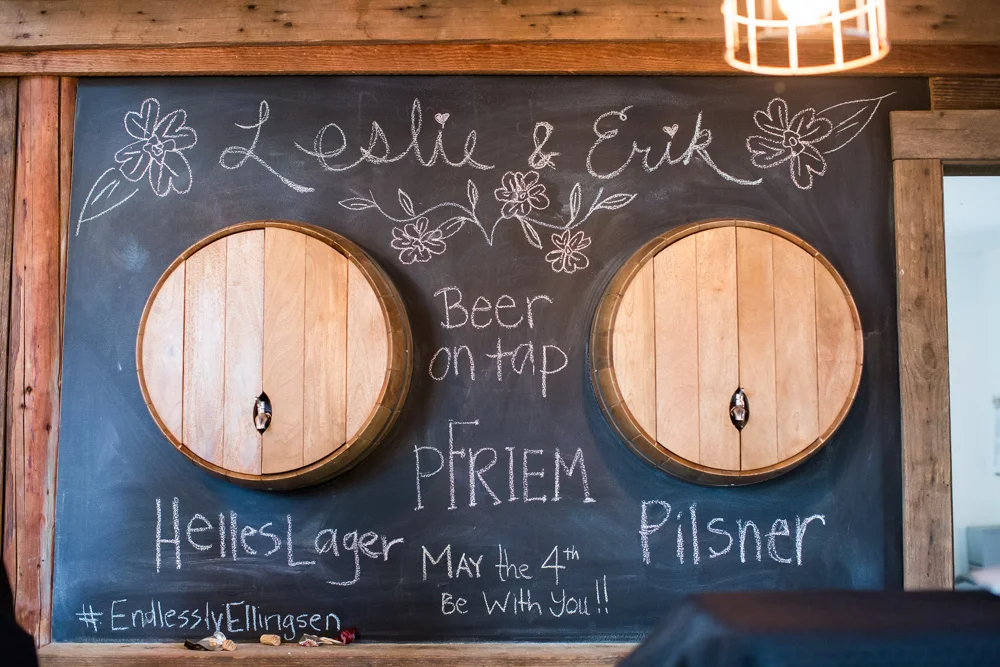 Leslie & Erik
Beer
on tap
pFRIEM
Helles Lager
Pilsner
May the 4th
Be With You!!
#EndlesslyEllingsen